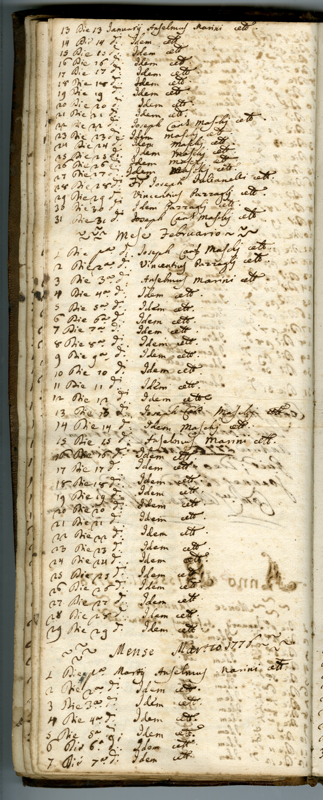 13 Die 13 Januarij Anselmus Marini cett.
14 Die 14 di Idem cett.
15 Die 15 di Idem cett
16 Die 16 di Idem cett.
17 Die 17 di Idem cett
18 Die 18 di Idem cett.
19 Die 19 di Idem cett
20 Die 20 di Idem cett.
21 Die 21 di Idem cett.
22 Die 22 di Joseph Can: Maschj cett.
23 Die 23 di Idem Maschj cett.
24 Die 24 di Idem Maschj cett.
25 Die 25 di Idem Maschj cett.
26 Die 26 di Idem Maschj cett.
27 Die 27 di Idem Maschj cett.
28 Die 28 di Joseph cett
29 Die 29 di Vincentius cett.
30 Die 30 di Idem cett.
31 Die 31 di Joseph Can: Maschj cett.
Mese Februario
1 Die pa di Joseph Can: Maschj cett.
2 Die 2a di Vincentius cett.
3 Die 3a di Anselmus Marini cett
4 Die 4a di Idem cett.
5 Die 5a di Idem cett.
6 Die 6a di Idem cett
7 Die 7a di Idem cett
8 Die 8a di Idem cett.
9 Die 9a di Idem cett.
10 Die 10 di Idem cett.
11 Die 11 di Idem cett.
12 Die 12 di Idem cett
13 Die 13 di Joseph Can: Maschj cett
14 Die 14 di Idem Maschj cett.
15 Die 15 di Anselmus Marini cett.
16 Die 16 di Idem cett
17 Die 17 di Idem cett
18 Die 18 di Idem cett.
19 Die 19 di Idem cett
20 Die 20 di Idem cett.
21 Die 21 di Idem cett
22 Die 22 di Idem cett
23 Die 23 di Idem cett
24 Die 24 di Idem cett
25 Die 25 di Idem cett
26 Die 26 di Idem cett
27 Die 27 di Idem cett
28 Die 28 di Idem cett
29 Die 29 di Idem cett
Mense Martio 1776
1 Die pa Martij Anselmus Marini cett
2 Die 2a di Idem cett.
3 Die 3a di Idem cett
4 Die 4a di Idem cett
5 Die 5a di Idem cett
6 Die 6a di Idem cett
7 Die 7a di Idem cett